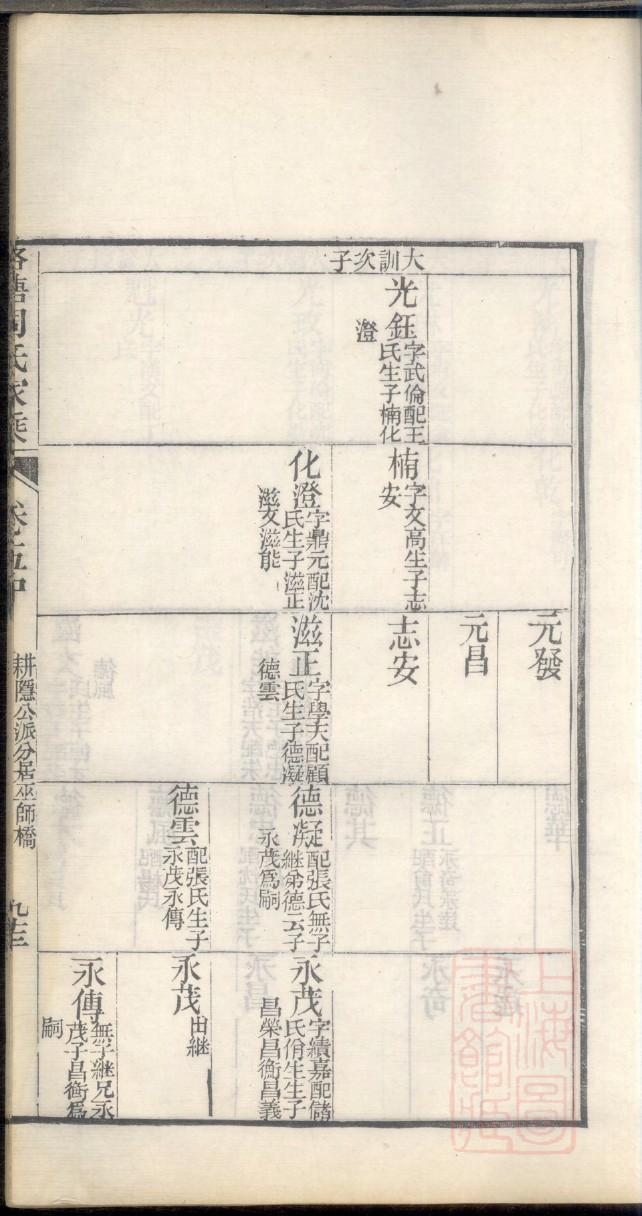 大訓次子
光鈺字武倫配王氏生子楠化澄
楠字文高生子志安
化澄字鼎元配沈氏生子滋正滋文滋能
元發
元昌
志安
滋正字學大配顧氏生子德凝德雲
德凝配張氏無子繼弟德云子永茂爲嗣
德雲配張氏生子永茂永傳
永茂字績嘉配儲氏佾生生子昌榮昌衡昌義
永茂出繼
永傳無子繼兄永茂子昌衡爲嗣
周氏家乘
卷五中
耕隱公派分居巫師橋
上海圖書館藏